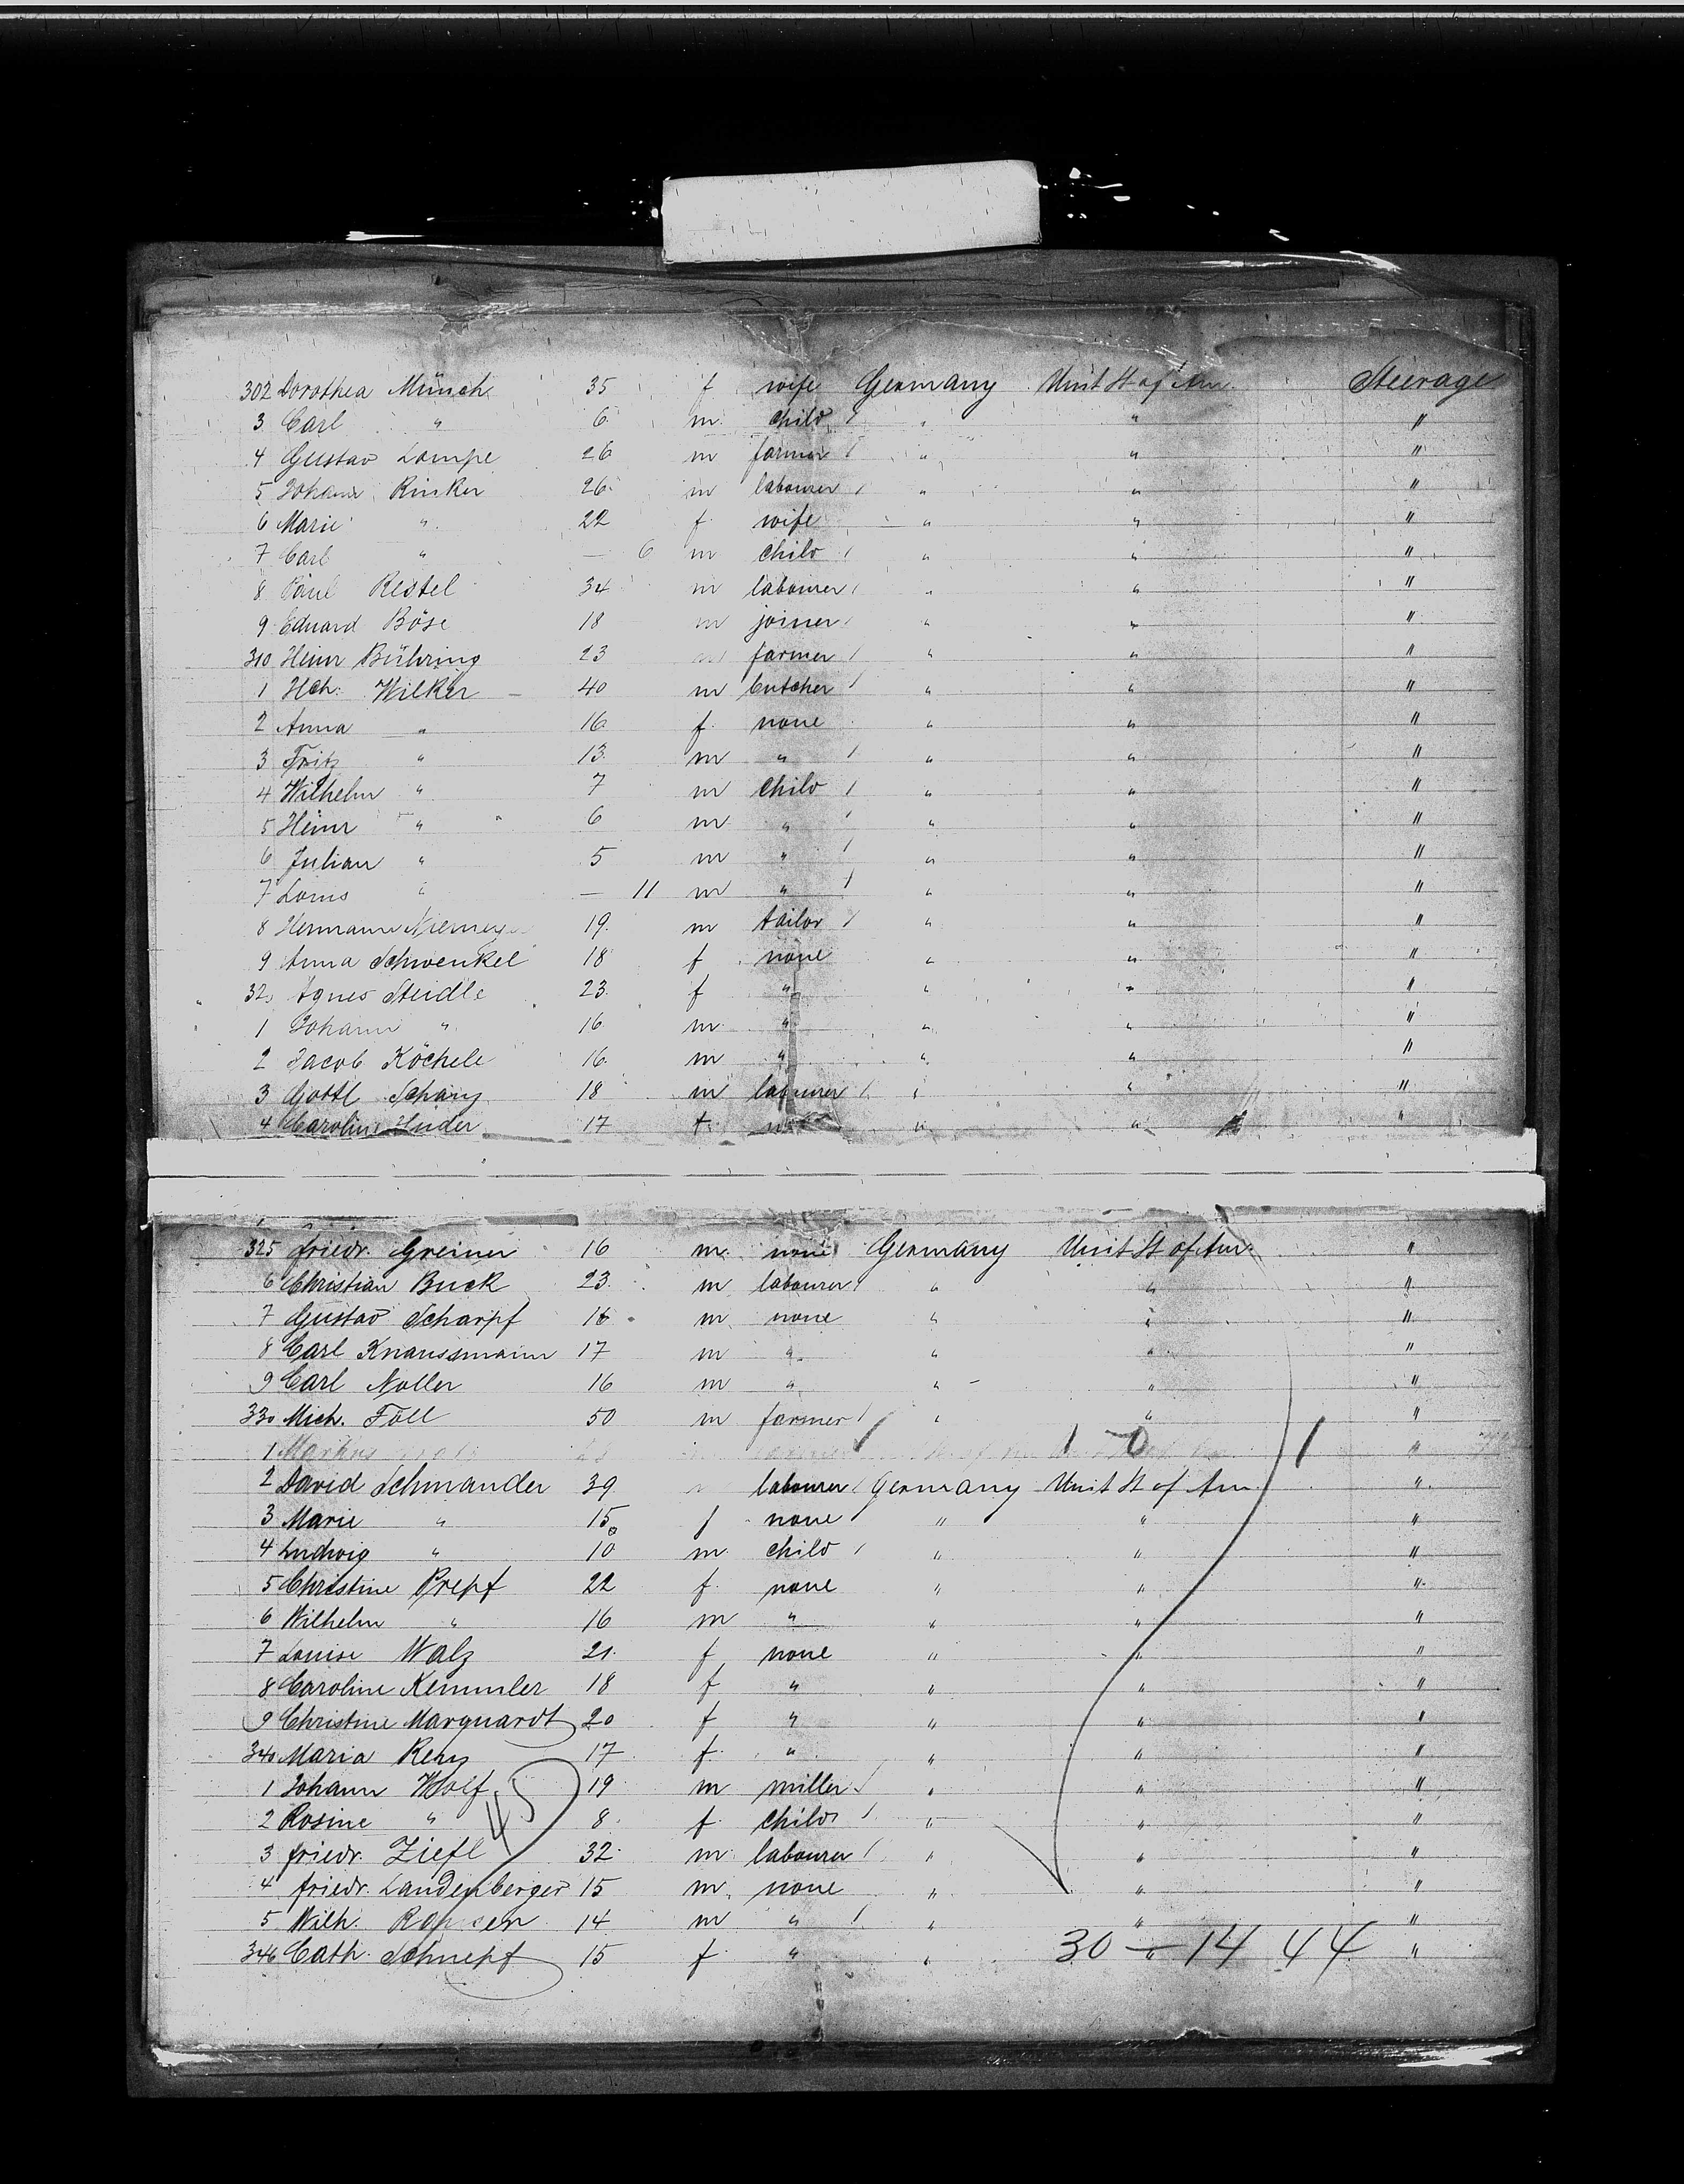 302 Dorothea Münch 35 f wife Germany Unit St of Am. Steerage
3 Carl " 6 m child / " " "
4 Gustav Lampe 26 m farmer / " " "
5 Johann Rinker 26 m labourer / " " "
6 Marie " 22 f wife " " "
7 Carl " — 6 m child / " " "
8 Paul Restel 34 m labourer / " " "
9 Eduard Böse 18 m joiner / " " "
310 Heinr Bühring 23 m farmer / " " "
1 Hch. Wilker — 40 m butcher / " " "
2 Anna " 16 f. none " " "
3 Fritz " 13 m " / " " "
4 Wilhelm " 7 m child / " " "
5 Heinr " 6 m " / " " "
6 Julian " 5 m " / " " "
7 Louis " — 11 m " / " " "
8 Hermann 19 m tailor / " " "
9 Anna Schwenkel 18 f none " " "
320 Agnes Steidle 23 f " " " "
1 Johann " 16 m " " " "
2 Jacob Köchele 16 m " " " "
3 Gottl Schanz 18 m labourer / " " "
4 Caroline 17 f " " "
325 Friedr. Greiner 16 m none Germany Unit St of Am. "
6 Christian Buck 23 m labourer / " " "
7 Gustav Scharpf 16 m none " " "
8 Carl Knaussmann 17 m " " " "
9 Carl Noller 16 m " " " "
330 Mich. Föll 50 m farmer / " " "
1 Markus / 1 — 0 1 "
2 David Schmander 39 labourer / Germany Unit St of Am. "
3 Marie " 15 f none " " "
4 Ludwig " 10 m child / " " "
5 Christine Prepf 22 f none " " "
6 Wilhelm " 16 m " " " "
7 Louise Walz 21 f none " " "
8 Caroline Kemmler 18 f " " " "
9 Christine Marquardt 20 f " " " "
340 Maria Renz 17 f. " " " "
1 Johann Wolf 19 m miller / " " "
2 Rosine " 8 f. child / " " "
45
3 Friedr. Ziefl 32 m labourer / " " "
4 Friedr. Landenberger 15 m none " " "
5 Wilh. 14 m " / " " "
346 Cath. Schnepf 15 f " " " "
30 — 14 44